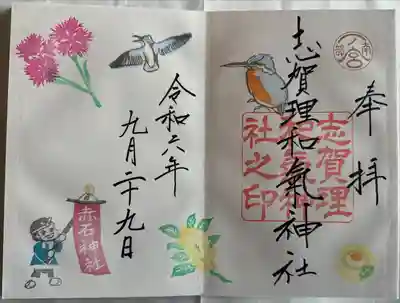 奉拝
志賀理和氣神社
志賀理
和氣神
社之印
令和六年
九月二十九日
赤石神社